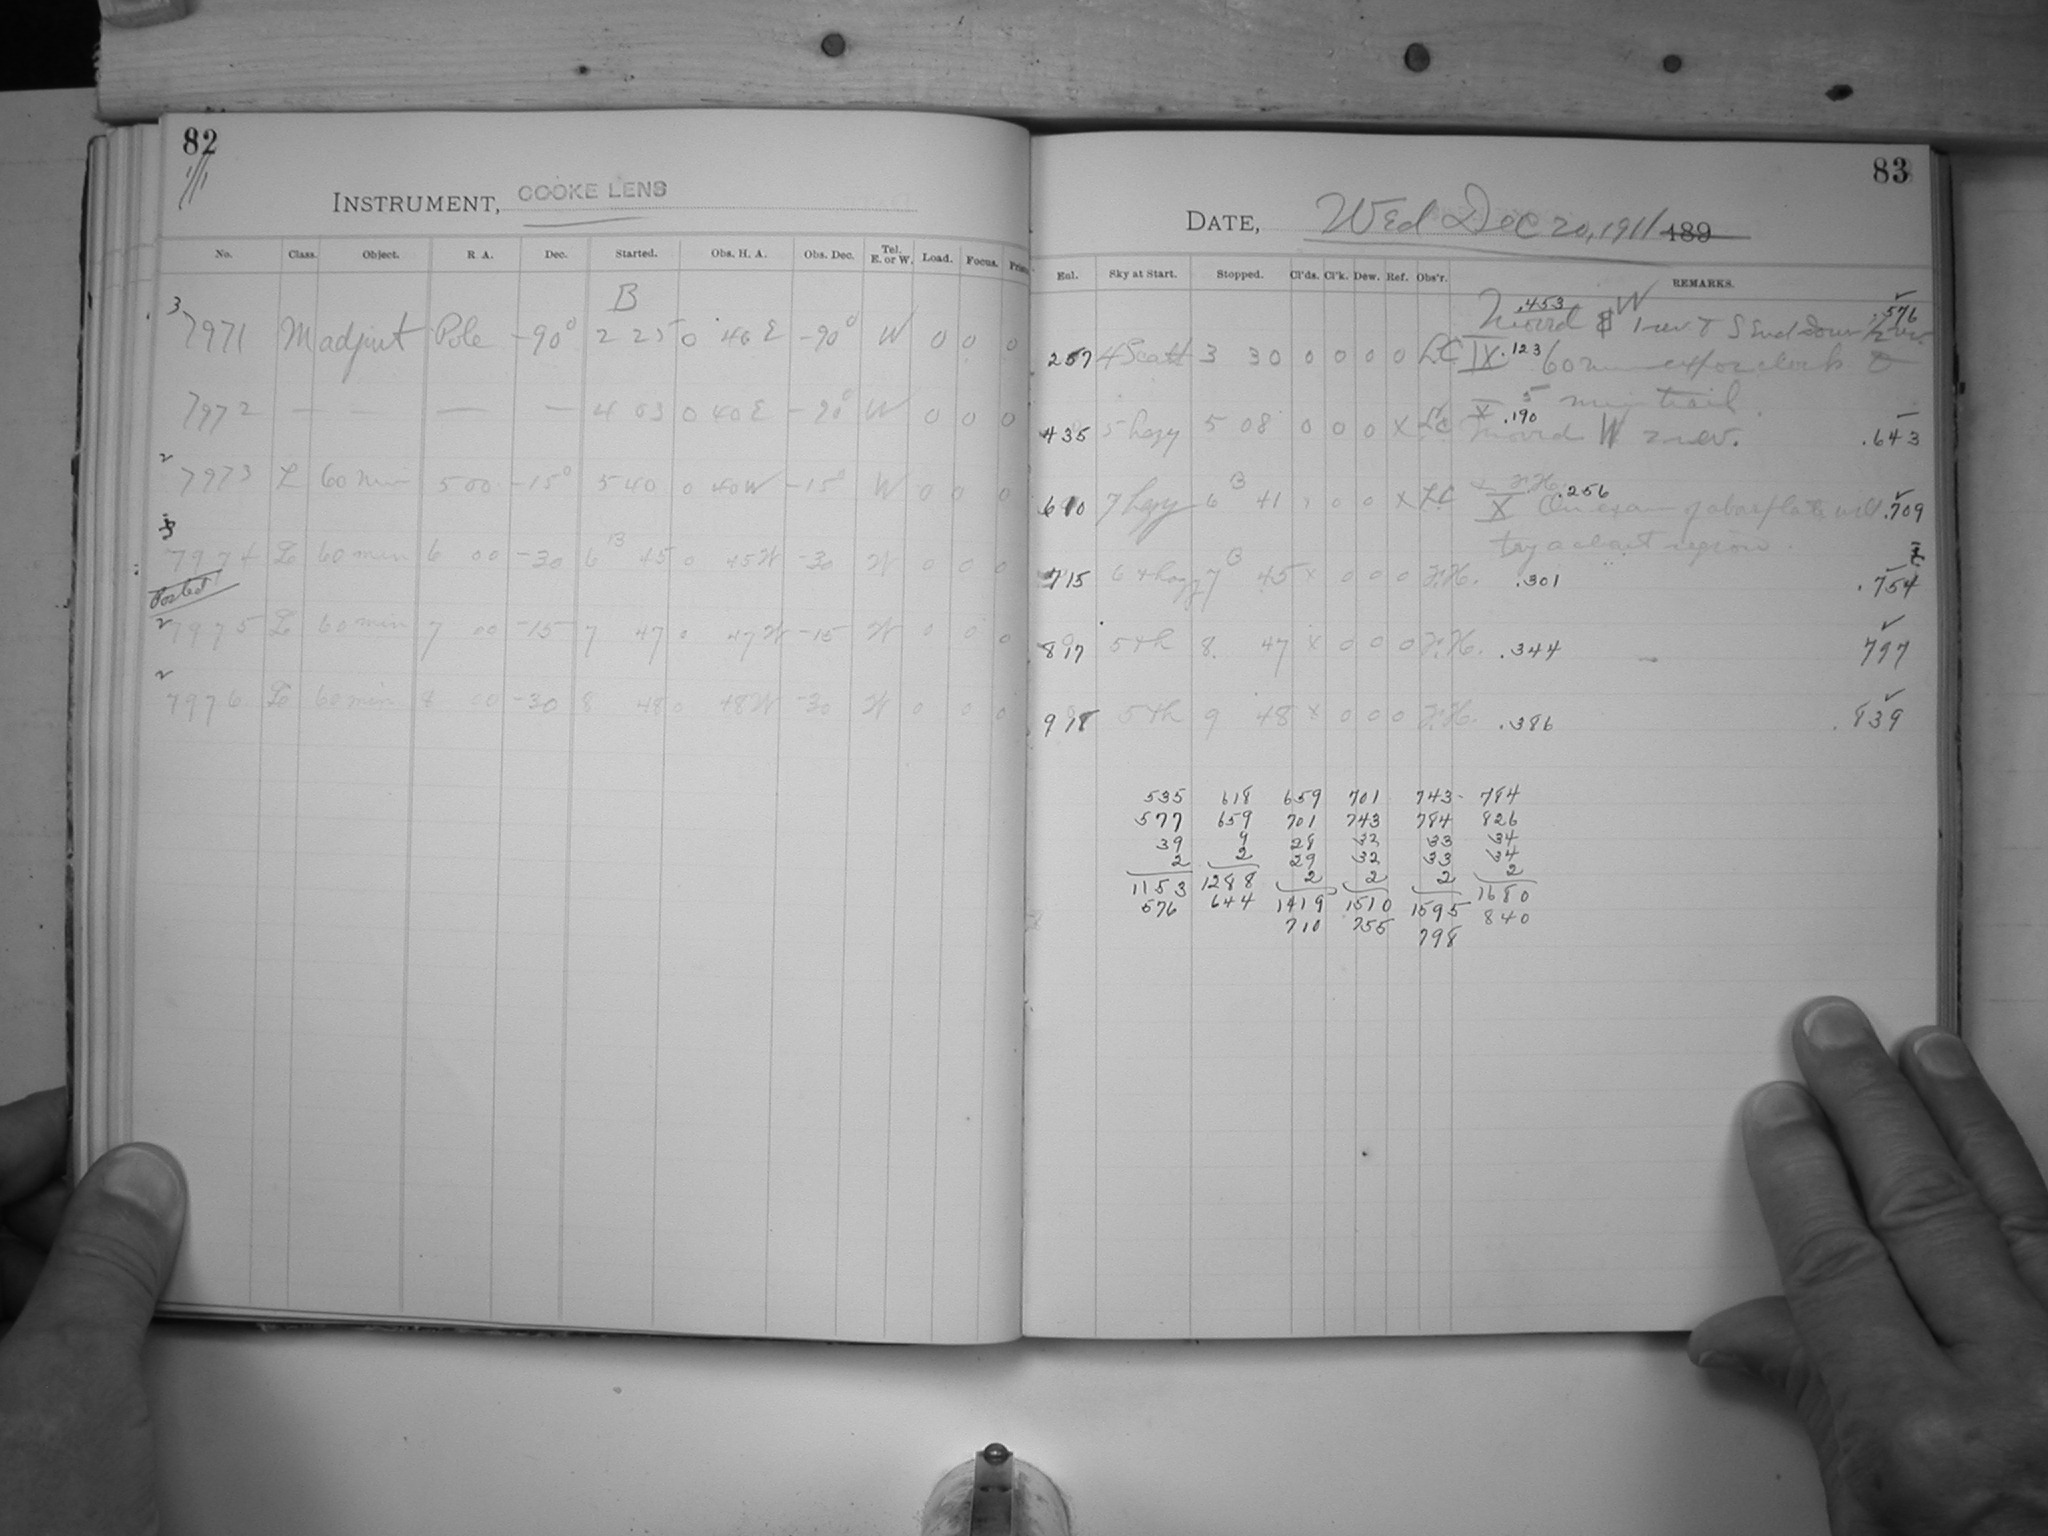 82
INSTRUMENT, COOKE LENS
No. Class. Object. R. A. Dec. Started. Obs. H. A. Obs. Dec. Tel. E. or W. Load. Focus.
B
3
7971 M adjust Pole -90° 2 25 0 40 E -90° W 0 0 0
7972 — — — — 4 03 0 40 E -90° W 0 0 0
7973 L 60 min 5 00 -15° 5 40 0 40 W -15° W 0 0 0
7974 L 60 min 6 00 -30 6 B 45 0 45 W -30 W 0 0 0
Posted
7975 L 60 min 7 00 -15 7 47 0 47 W -15 W 0 0 0
7976 L 60 min 8 00 -30 8 48 0 48 W -30 W 0 0 0
83
DATE, Wed Dec 20, 1911 189
Enl. Sky at Start. Stopped. Cl'ds. Cl'k. Dew. Ref. Obs'r. REMARKS.
.453 .576
Moved W 1 rev. & S end down
257 4 Scatt 3 30 0 0 0 0 LC IX .123 60 min clock
X 5 min trail
435 5 hazy 5 08 0 0 0 X LC .190 moved W 2 rev. .643
610 7 hazy 6 B 41 0 0 X LC X .256 On exam of above plate will .709
try a chart region.
715 6 + hazy 7 B 45 x 0 0 0 .301 .754
817 5 + h 8. 47 x 0 0 0 .344 797
918 5 + h 9 48 x 0 0 0 .386 .839
535 618 659 701 743 784
577 659 701 743 784 826
39 9 28 32 33 34
2 2 29 32 33 34
1153 1288 2 2 2 2
576 644 1419 1510 1595 1680
710 755 798 840